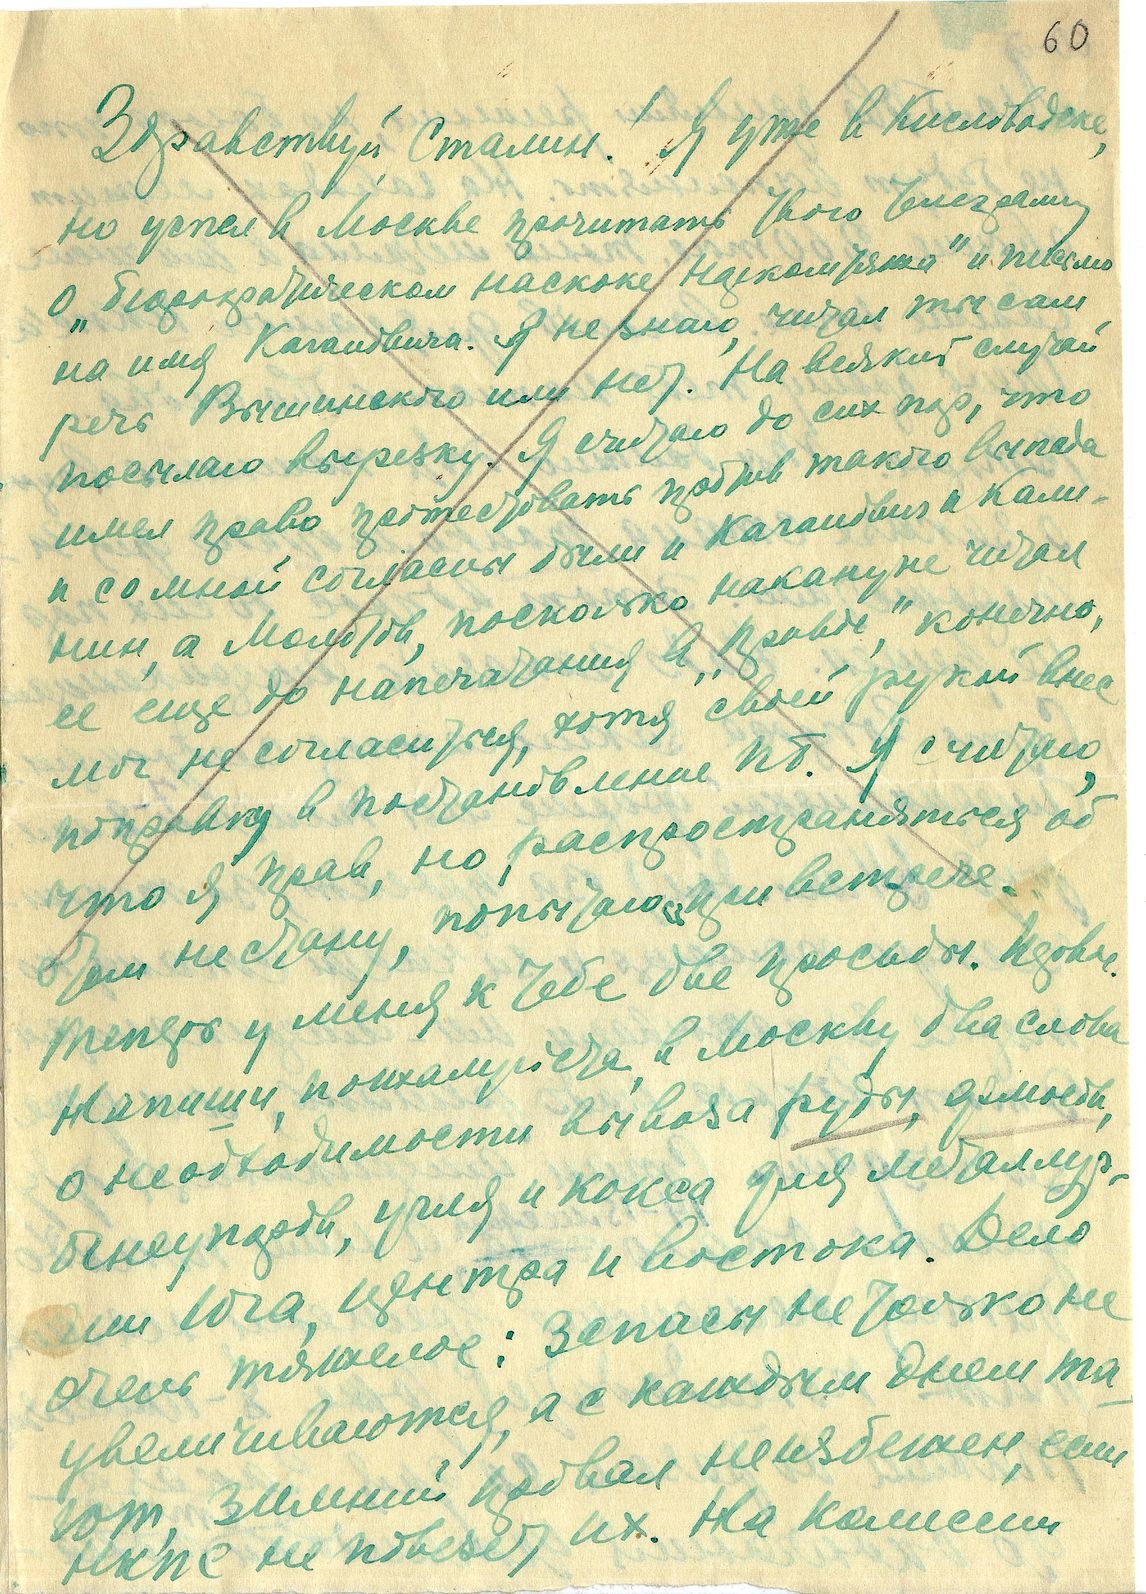 60
Здравствуй Сталин! Я уже в Кисловодске,
но успел в Москве прочитать твою телеграмму
о „бюрократическом наскоке Наркомтяжа" и письмо
на имя Кагановича. Я не знаю, читал ты сам
речь Вышинского или нет. На всякий случай
посылаю вырезку. Я считаю до сих пор, что
имел право протестовать против такого выпада
и со мной согласны были и Каганович и Кали-
нин, а Молотов, поскольку накануне читал
ее еще до напечатания в „Правде", конечно,
мог не согласиться, хотя своей рукой внес
поправку в постановление ПБ. Я считаю,
что я прав, но распространяться об
этом не стану, при встрече.
Теперь у меня к тебе две просьбы. Первое.
Напиши, пожалуйста, в Москву два слова
о необходимости вывоза руды, флюсов,
огнеупоров, угля и кокса для металлур-
гии Юга, центра и востока. Дело
очень тяжелое: Запасы не только не
увеличиваются, а с каждым днем та-
ют. Зимний провал неизбежен, если
НКПС не повезет их. На комиссии